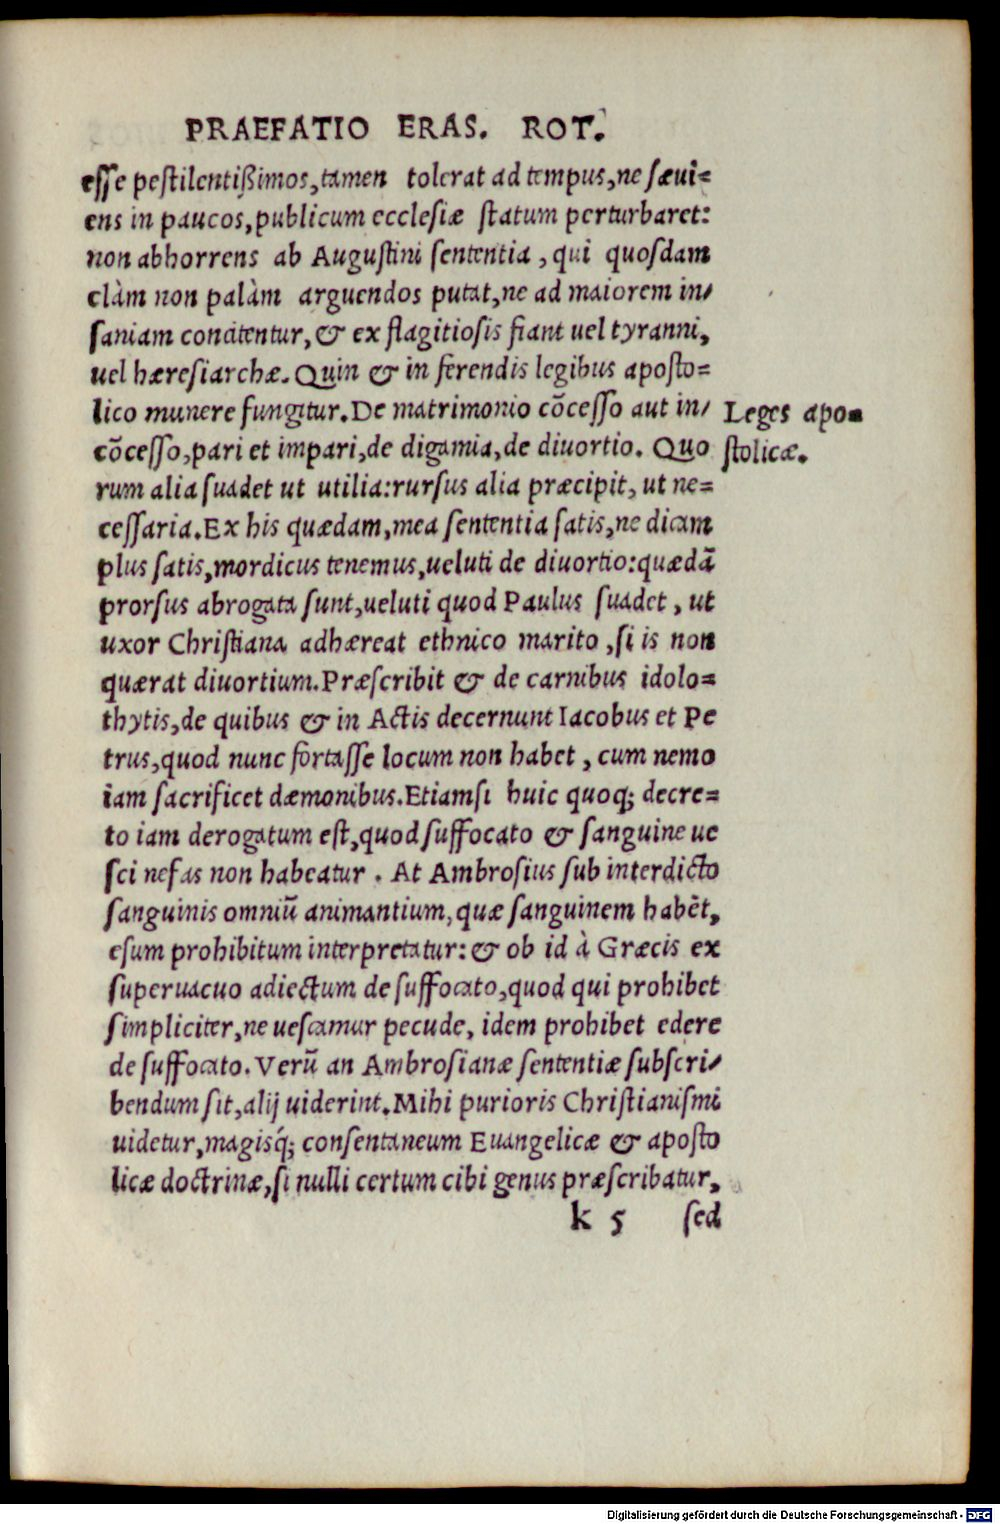 PRAEFATIO ERAS. ROT.
esse pestilentißimos, tamen tolerat ad tempus, ne sæui=
ens in paucos, publicum ecclesiæ statum perturbaret:
non abhorrens ab Augustini sententia, qui quosdam
clàm non palàm arguendos putat, ne ad maiorem in/
saniam concitentur, & ex flagitiosis fiant uel tyranni,
uel hæresiarchæ. Quin & in ferendis legibus aposto=
lico munere fungitur. De matrimonio cõcesso aut in/
cõcesso, pari et impari, de digamia, de diuortio. Quo
rum alia suadet ut utilia: rursus alia præcipit, ut ne=
cessaria. Ex his quædam, mea sententia satis, ne dicam
plus satis, mordicus tenemus, ueluti de diuortio: quædã
prorsus abrogata sunt, ueluti quod Paulus suadet, ut
uxor Christiana adhæreat ethnico marito, si is non
quærat diuortium. Præscribit & de carnibus idolo=
thytis, de quibus & in Actis decernunt Iacobus et Pe
trus, quod nunc fortasse locum non habet, cum nemo
iam sacrificet dæmonibus. Etiamsi huic quoq; decre=
to iam derogatum est, quod suffocato & sanguine ue
sci nefas non habeatur. At Ambrosius sub interdicto
sanguinis omniũ animantium, quæ sanguinem habẽt,
esum prohibitum interpretatur: & ob id à Græcis ex
superuacuo adiectum de suffocato, quod qui prohibet
simpliciter, ne uescamur pecude, idem prohibet edere
de suffocato. Verũ an Ambrosianæ sententiæ subscri/
bendum sit, alij uiderint. Mihi purioris Christianismi
uidetur, magisq́; consentaneum Euangelicæ & aposto
licæ doctrinæ, si nulli certum cibi genus præscribatur,
k 5 sed
Leges apo=
stolicæ.
Digitalisierung gefördert durch die Deutsche Forschungsgemeinschaft - DFG